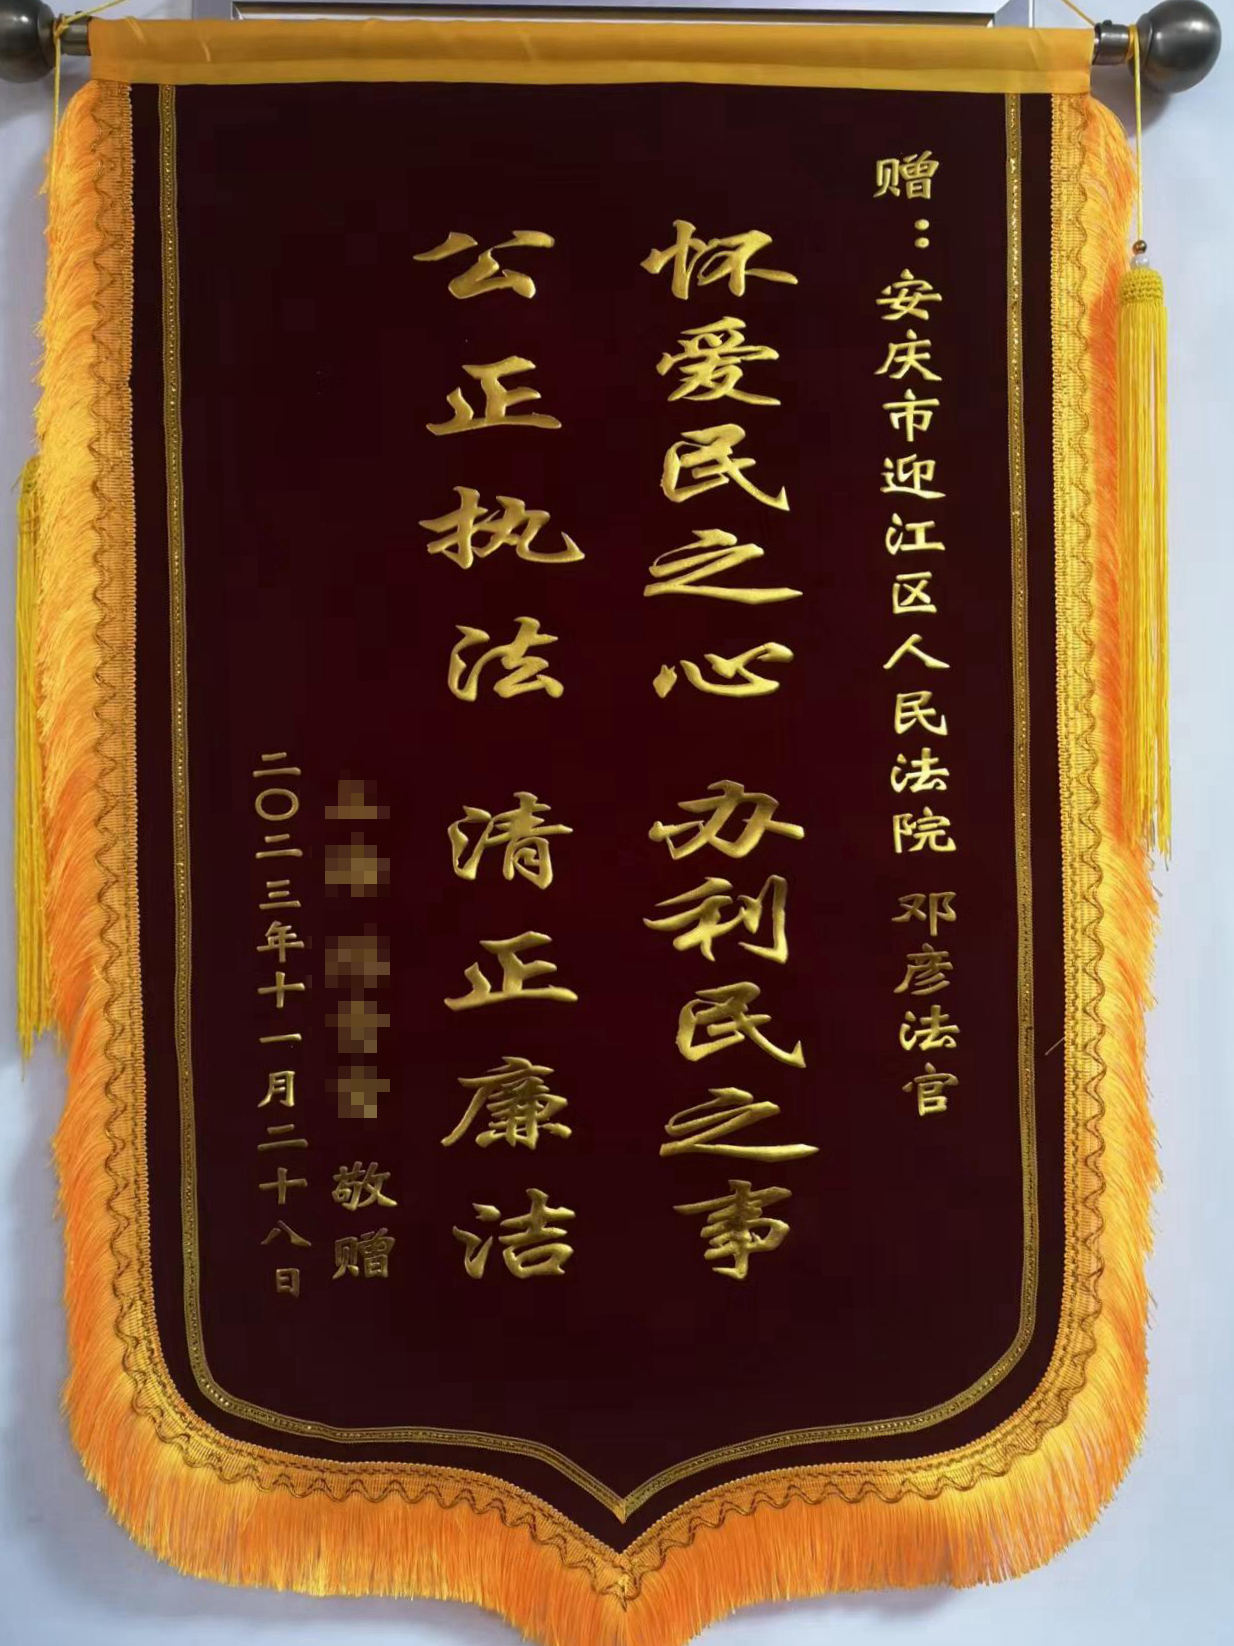 赠：安庆市迎江区人民法院 邓彦法官
怀爱民之心 办利民之事
公正执法 清正廉洁
敬赠
二〇二三年十一月二十八日